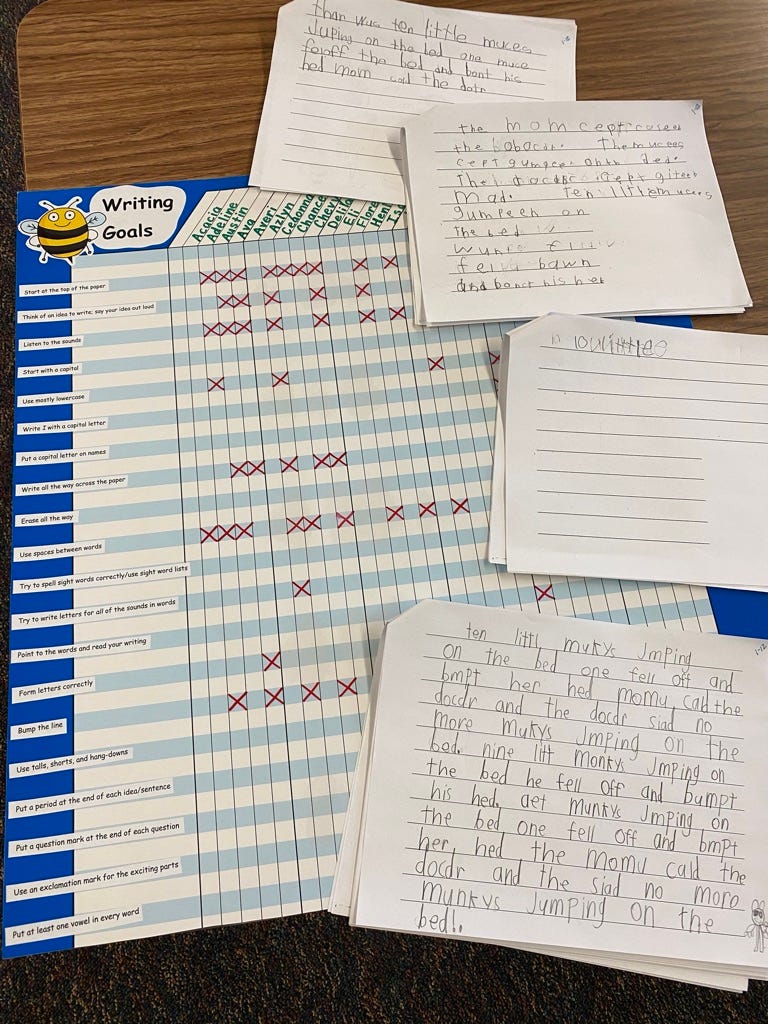 Than was ten little muces
Juping on the bed one muce
feloff the bed and bont his
hed mom cald the dotr
1-8
the mom cept
the Themucees
cept
The
mad. Ten
gumpeen on
The bed
fell bawn
and bonct his her
Writing
Goals
Acacia
Adeline
Austin
Ava
Averi
Azlyn
Cedonna
Chance
Chevy
Eli
Start at the top of the paper
Think of an idea to write; say your idea out loud
Listen to the sounds
Start with a capital
Use mostly lowercase
Write I with a capital letter
Put a capital letter on names
Write all the way across the paper
Erase all the way
Use spaces between words
Try to spell sight words correctly/use sight word lists
Try to write letters for all of the sounds in words
Point to the words and read your writing
Form letters correctly
Bump the line
Use talls, shorts, and hang-downs
Put a period at the end of each idea/sentence
Put a question mark at the end of each question
Use an exclamation mark for the exciting parts
Put at least one vowel in every word
1-12
ten littl mukys Jmping
on the bed one fell off and
bmpt her hed momy cald the
docdr and the docdr siad no
more mukys Jmping on the
bed. nine litt monkys Jmping on
the bed he fell off and bumpt
his hed. aet munkys Jmping on
the bed one fell off and bmpt
her hed the momy cald the
docdr and the siad no more
munkys Jumping on the
bed!.